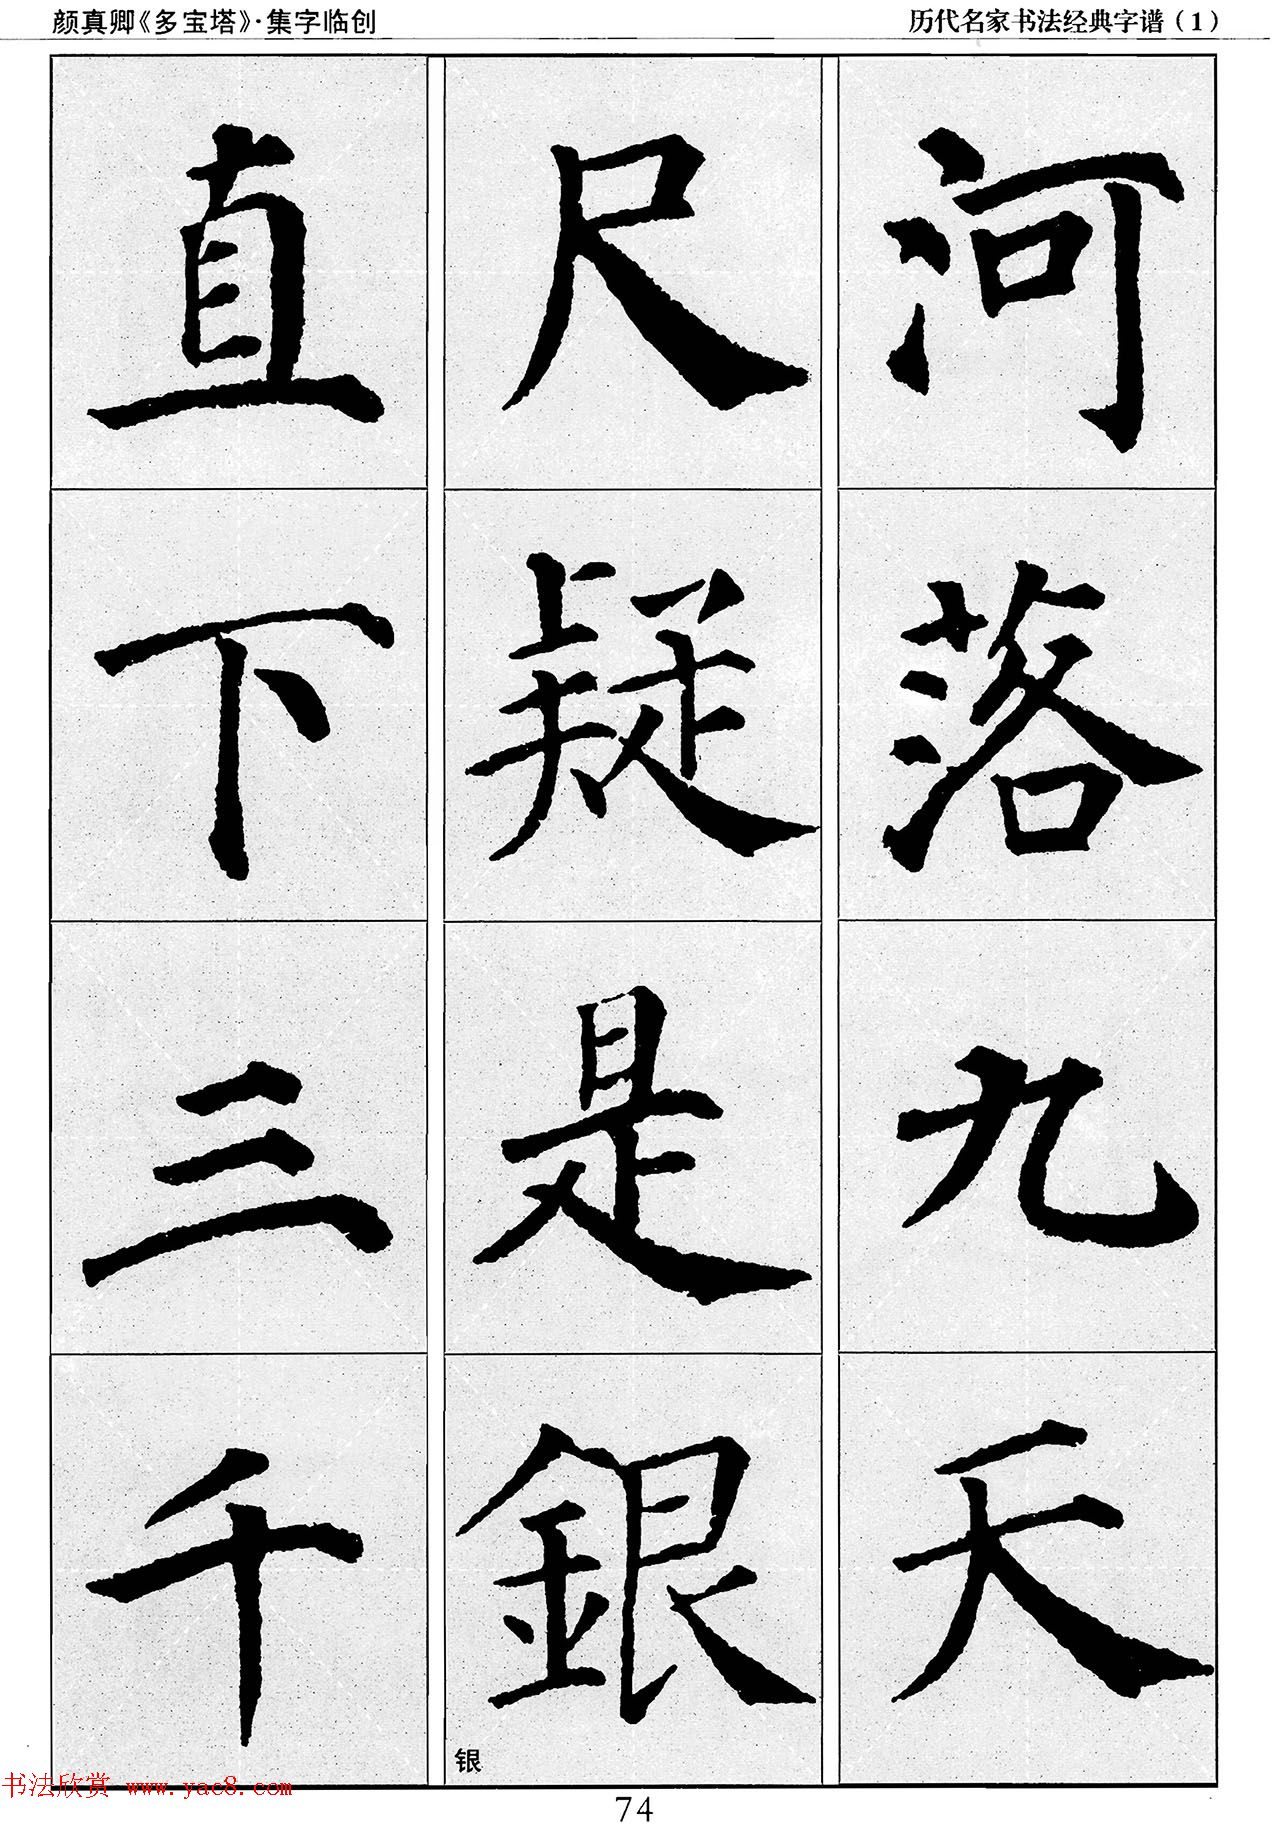 颜真卿《多宝塔》·集字临创
历代名家书法经典字谱（1）
直下三千
尺疑是銀
河落九天
银
书法欣赏 www.yac8.com
74